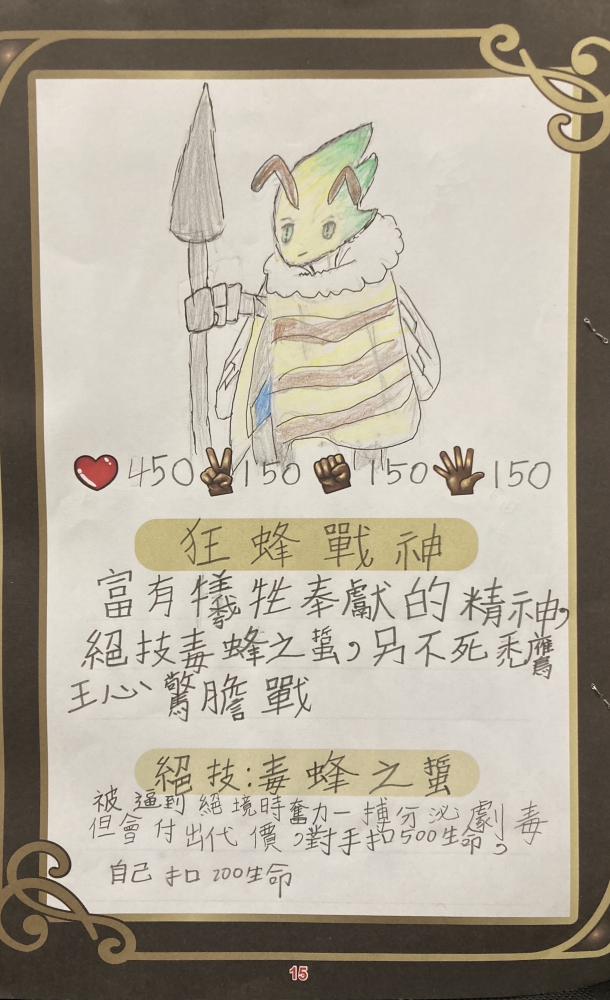 450 150 150 150
狂蜂戰神
富有犠牲奉獻的精神,
絕技毒蜂之蜇,另不死禿鷹
王心驚膽戰
絕技:毒蜂之蜇
被逼到絕境時奮力一搏分泌劇毒
但會付出代價,對手扣500生命,
自己扣200生命
15